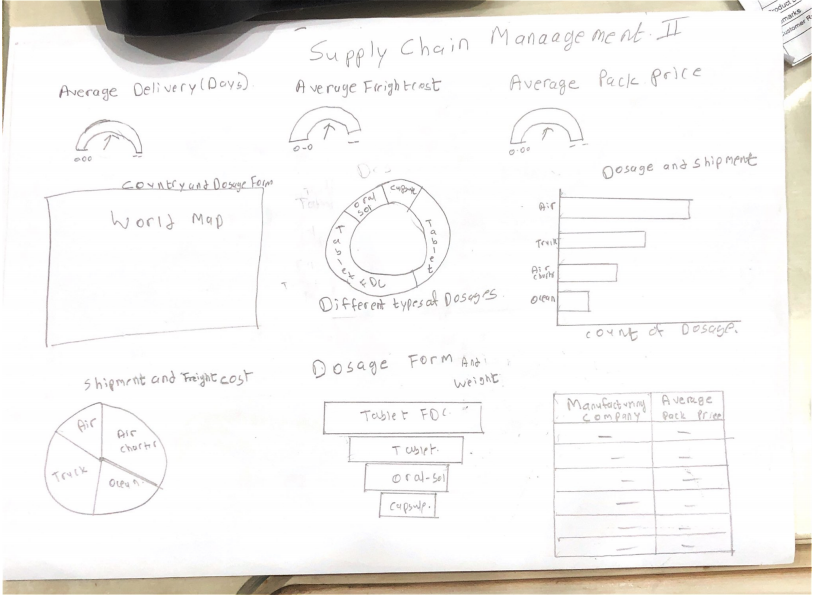 Supply Chain Manaagement. II
Average Delivery(Days)
Average Freightcost
Average Pack price
0-00
--
0-0
--
0-00
--
Country and Dosage Form
World Map
oral
sol
capsule
Tablet
Tablet FDC
Different types of Dosages.
Dosage and shipment
Air
Truck
Air
charter
Ocean
count of Dosage.
Shipment and Freight cost
Air
Air
charter
Truck
Ocean.
Dosage Form And
weight
Tablet FDC.
Tablet.
oral-sol
capsule.
Manufacturing
Company
Average
Pack Price